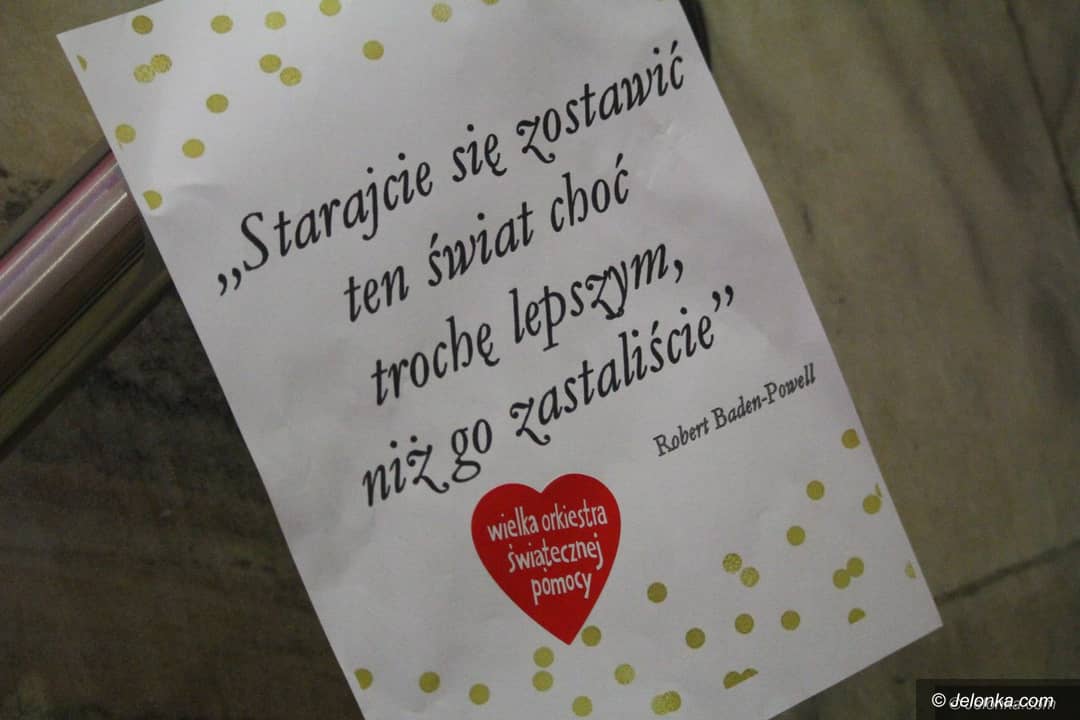 „Starajcie się zostawić
ten świat choć
trochę lepszym,
niż go zastaliście”
Robert Baden-Powell
wielka orkiestra
świątecznej
pomocy
© Jelonka.com